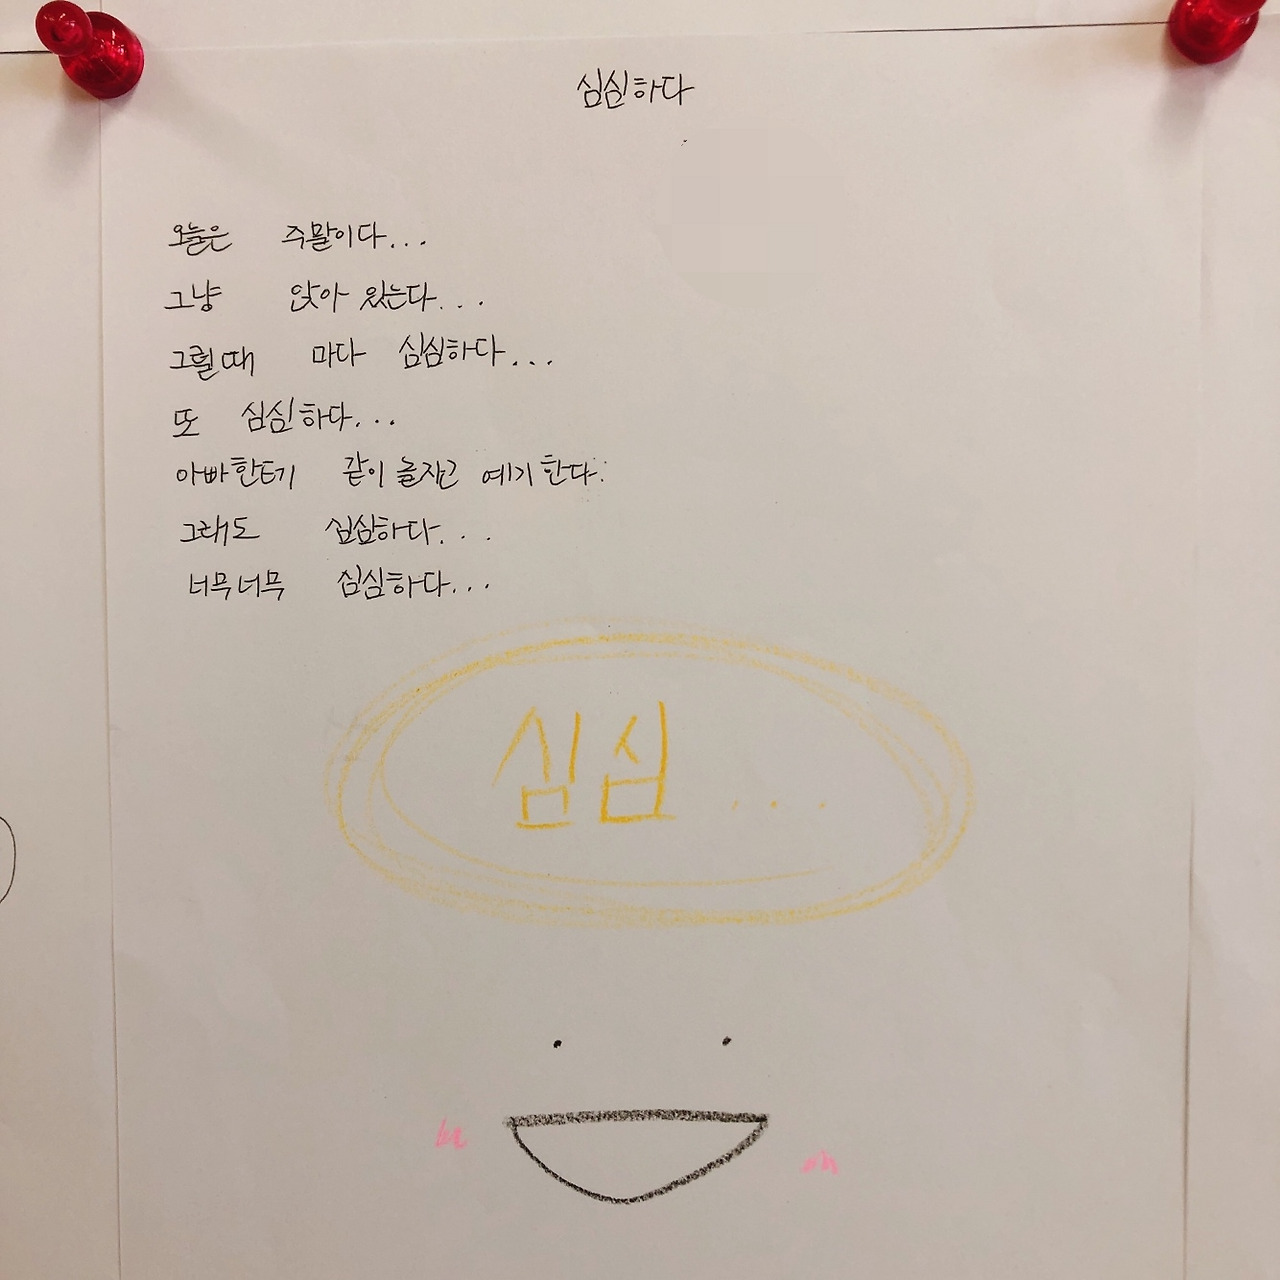 심심하다
오늘은 주말이다...
그냥 앉아 있는다...
그럴때 마다 심심하다...
또 심심하다...
아빠한테 같이 놀자고 예기한다.
그래도 심심하다...
너무너무 심심하다...
심심...